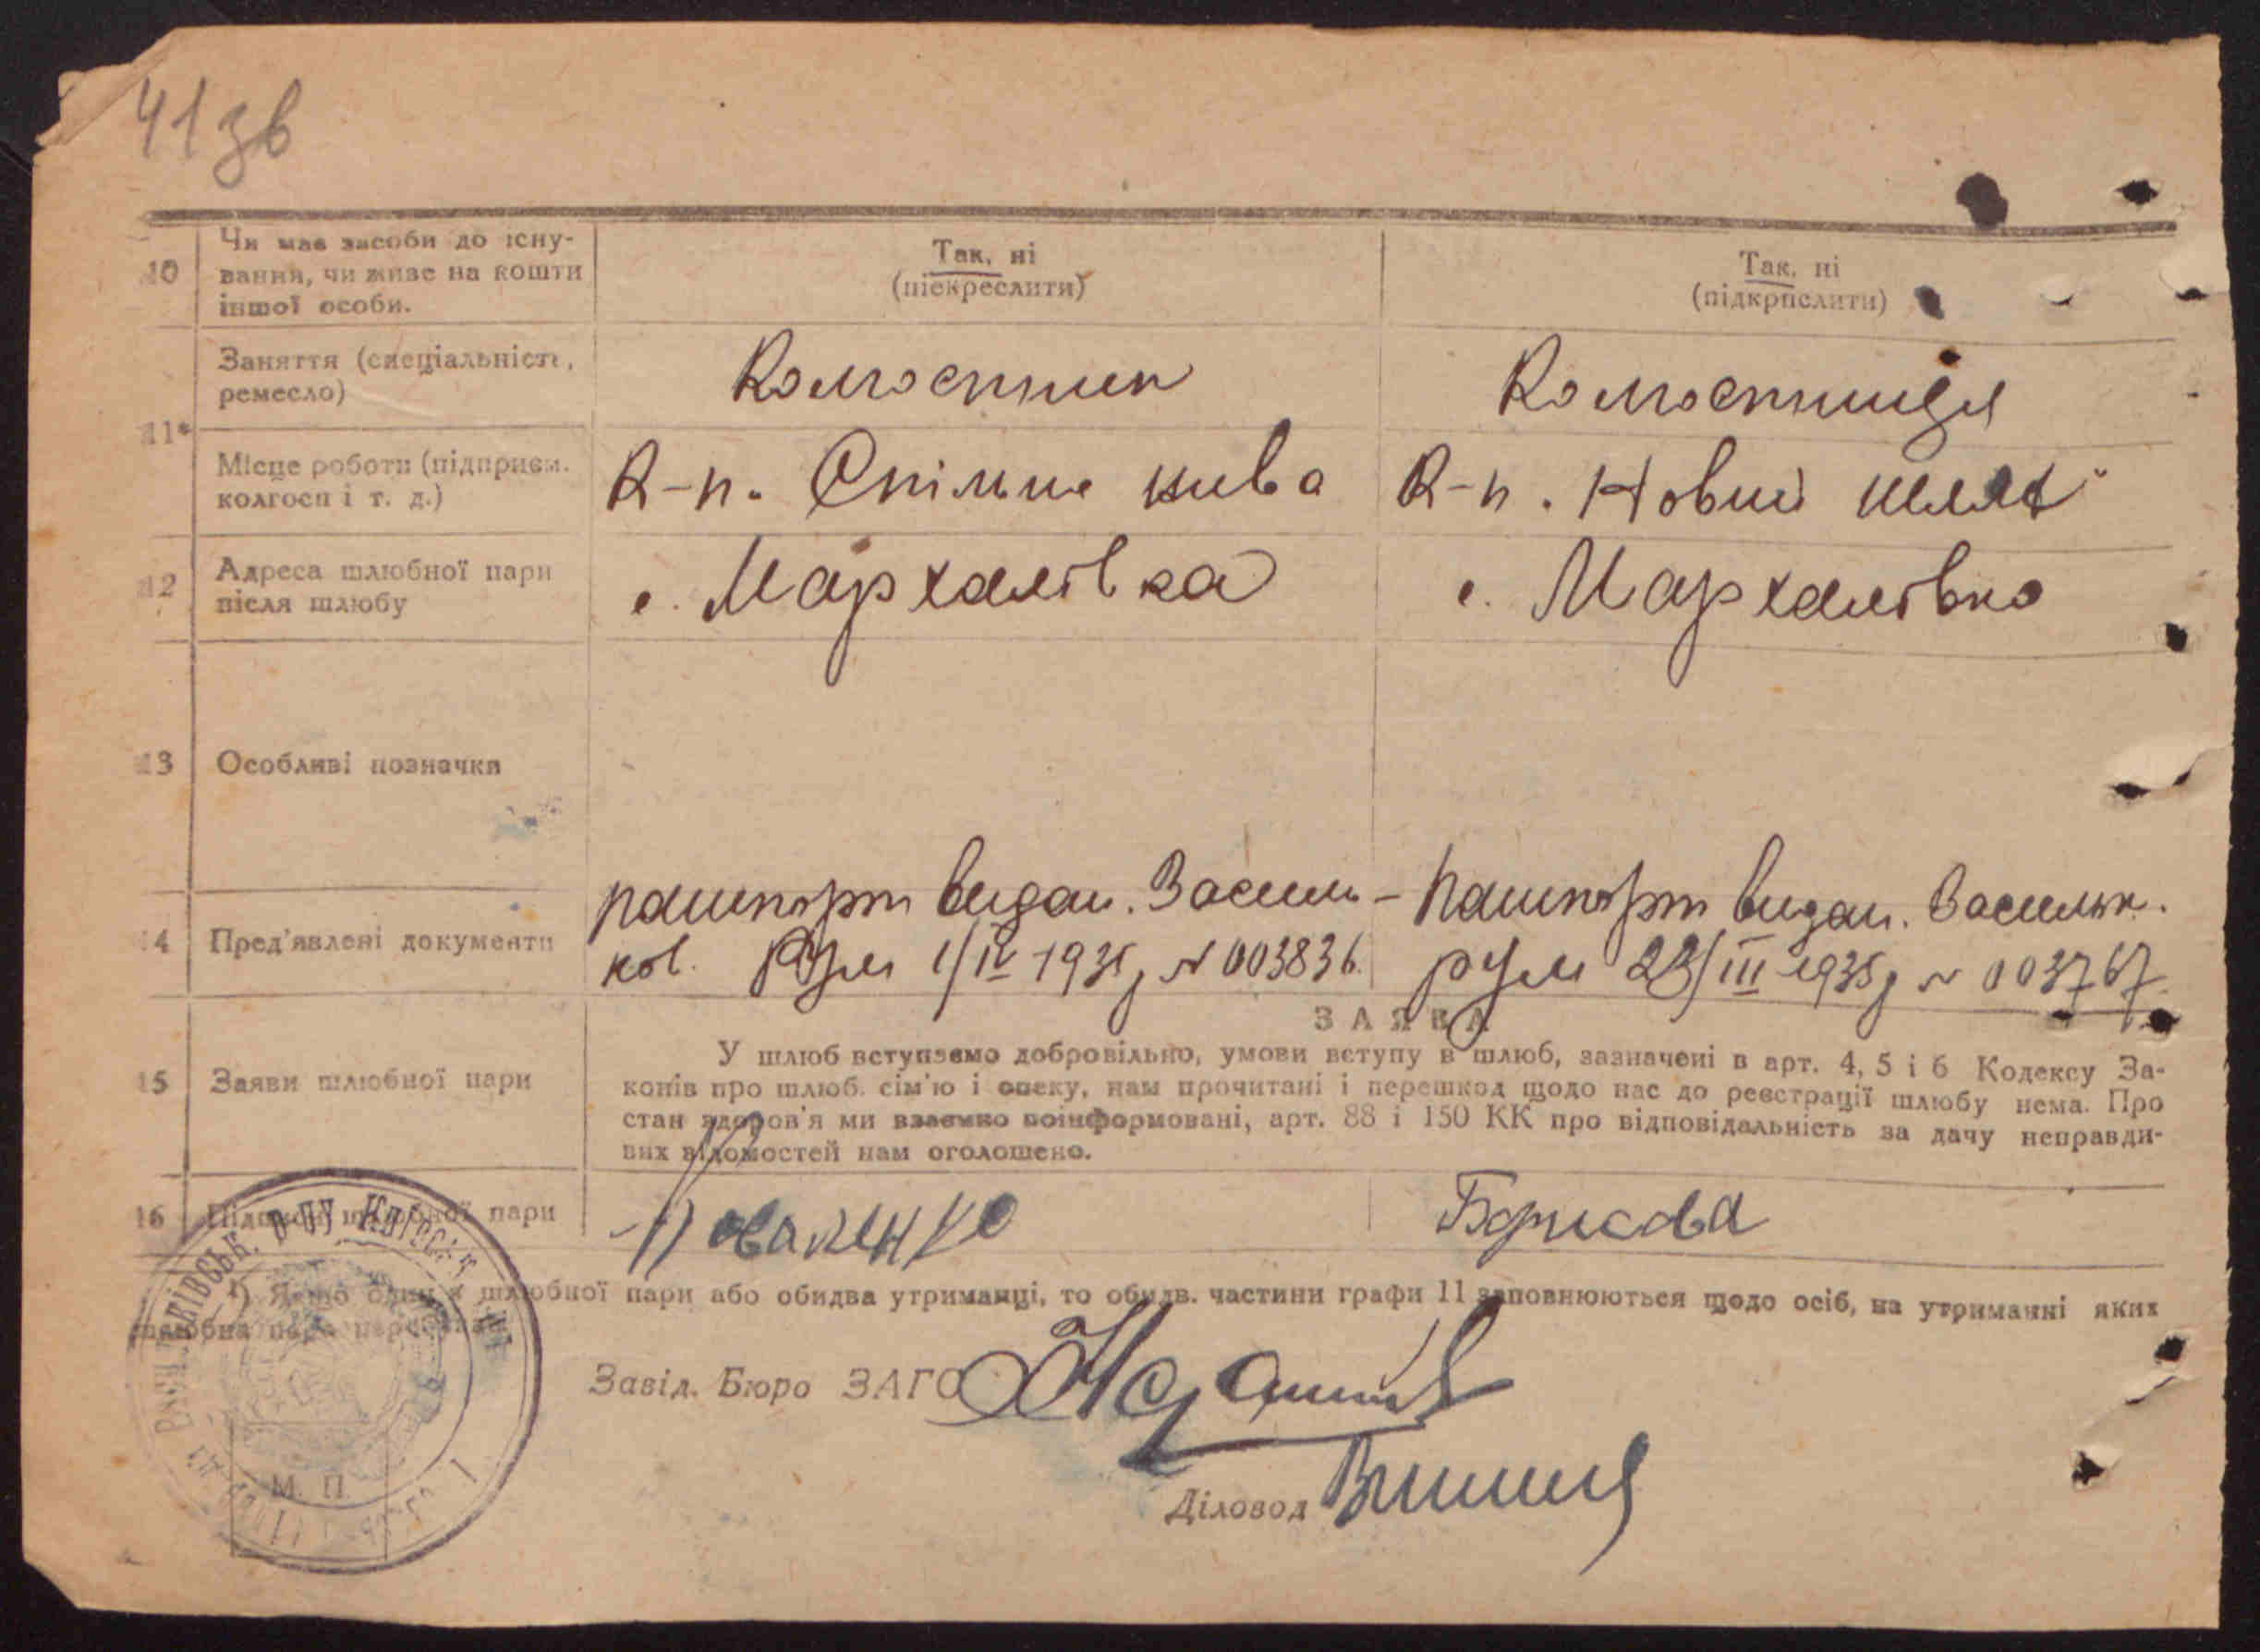 41 зв
10 Чи має засоби до існу-
вання, чи живе на кошти
іншої особи.
Так, ні
(піскреслити)
Так, ні
(підкрпслити)
11*
Заняття (спеціальність,
ремесло)
Колгоспник
Колгоспниця
Місце роботи (підприєм.
колгосп і т. д.)
К-п. Спільна нива
К-п. Новий шлях
12 Адреса шлюбної пари
після шлюбу
с. Мархалівка
с. Мархалівка
13 Особливі позначки
14 Пред'явлені документи
пашпорт видан. Василь-
ков. РУМ 1/IV 1935 р № 003836.
пашпорт видан. Васильк.
РУМ 23/III 1935 р № 003767.
15 Заяви шлюбної пари
ЗАЯВА
У шлюб вступаємо добровільно, умови вступу в шлюб, зазначені в арт. 4, 5 і 6 Кодексу За-
конів про шлюб. сім'ю і опеку, нам прочитані і перешкод щодо нас до реєстрації шлюбу нема. Про
стан здоров'я ми взаємно поінформовані, арт. 88 і 150 КК про відповідальність за дачу неправди-
вих відомостей нам оголошено.
16 Підписи шлюбної пари
Борисова
*) Якщо один з шлюбної пари або обидва утриманці, то обидв. частини графи 11 заповнюються щодо осіб, на утриманні яких
шлюбна пара
Завід. Бюро ЗАГС
Діловод
М. П.